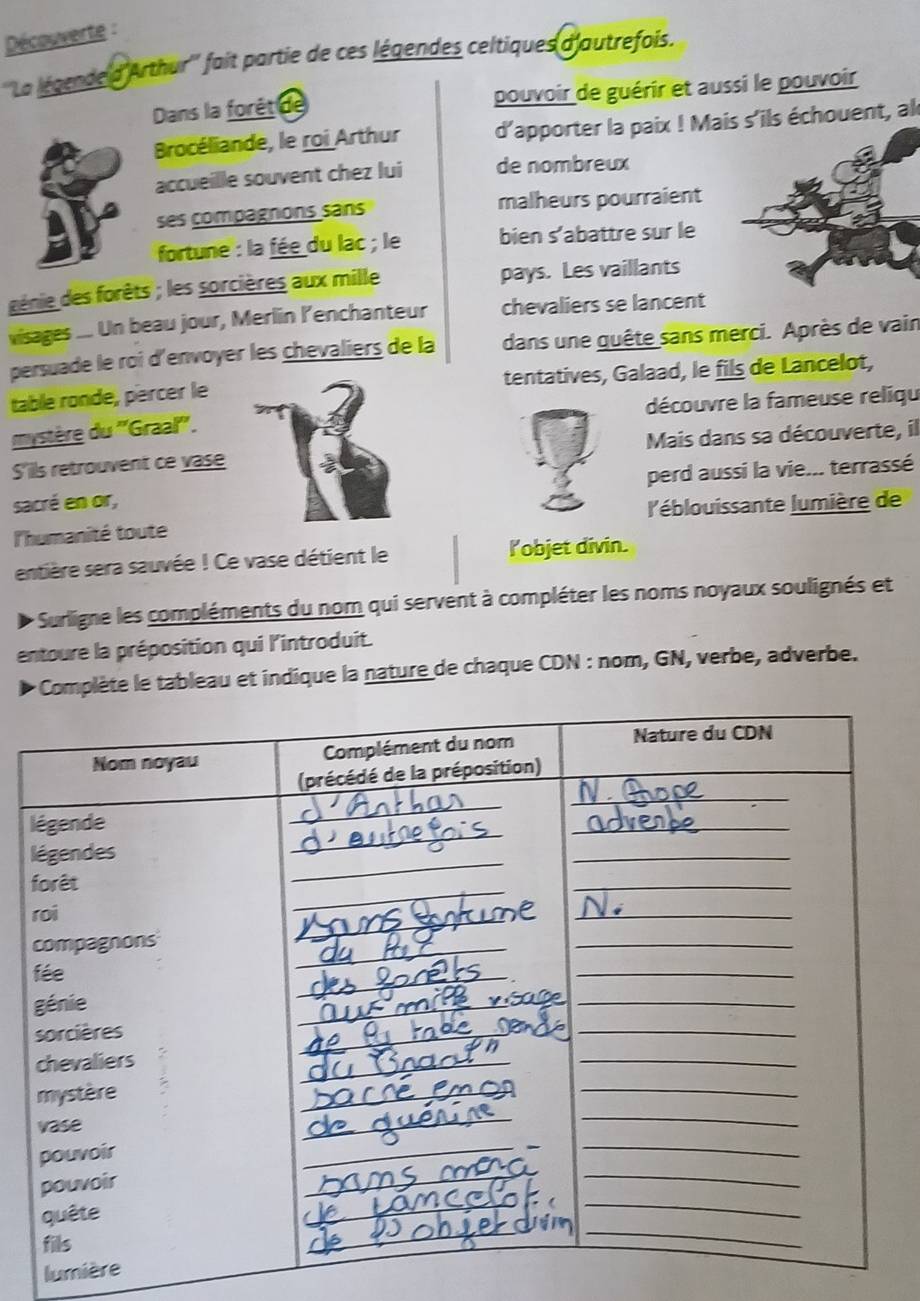 Découverte :
"La légende d'Arthur" fait partie de ces légendes celtiques d'autrefois.
Dans la forêt de
Brocéliande, le roi Arthur
accueille souvent chez lui
ses compagnons sans
fortune : la fée du lac ; le
génie des forêts ; les sorcières aux mille
visages ... Un beau jour, Merlin l'enchanteur
persuade le roi d'envoyer les chevaliers de la
table ronde, percer le
mystère du "Graal".
S'ils retrouvent ce vase
sacré en or,
l'humanité toute
entière sera sauvée ! Ce vase détient le
pouvoir de guérir et aussi le pouvoir
d'apporter la paix ! Mais s'ils échouent, al
de nombreux
malheurs pourraient
bien s'abattre sur le
pays. Les vaillants
chevaliers se lancent
dans une quête sans merci. Après de vain
tentatives, Galaad, le fils de Lancelot,
découvre la fameuse reliqu
Mais dans sa découverte, il
perd aussi la vie... terrassé
l'éblouissante lumière de
l'objet divin.
▶ Surligne les compléments du nom qui servent à compléter les noms noyaux soulignés et
entoure la préposition qui l'introduit.
▶ Complète le tableau et indique la nature de chaque CDN : nom, GN, verbe, adverbe.
Nom noyau
Complément du nom
(précédé de la préposition)
Nature du CDN
légende
légendes
forêt
roi
compagnons
fée
génie
sorcières
chevaliers
mystère
vase
pouvoir
pouvoir
quête
fils
lumière
d'Arthur
d'autrefois
sans fortune
du
des forêts
aux mille visage
de la table ronde
du Graal"
sacré en or
de guérire
sans merci
de Lancelot
de l'objet divin
N. propre
adverbe
N.